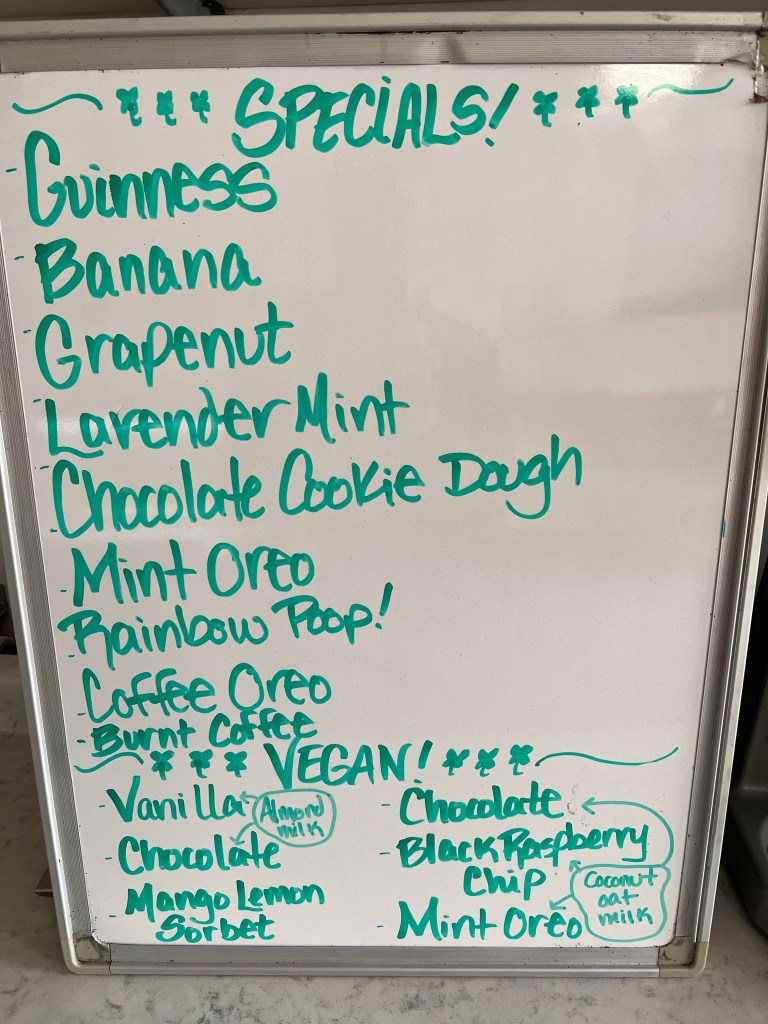 SPECIALS!
- Guinness
- Banana
- Grapenut
- Lavender Mint
- Chocolate Cookie Dough
- Mint Oreo
- Rainbow Poop!
- Coffee Oreo
- Burnt Coffee
VEGAN!
- Vanilla
Almond
milk
- Chocolate
- Mango Lemon
Sorbet
- Chocolate
- Black Raspberry
Chip
Coconut
oat
milk
- Mint Oreo